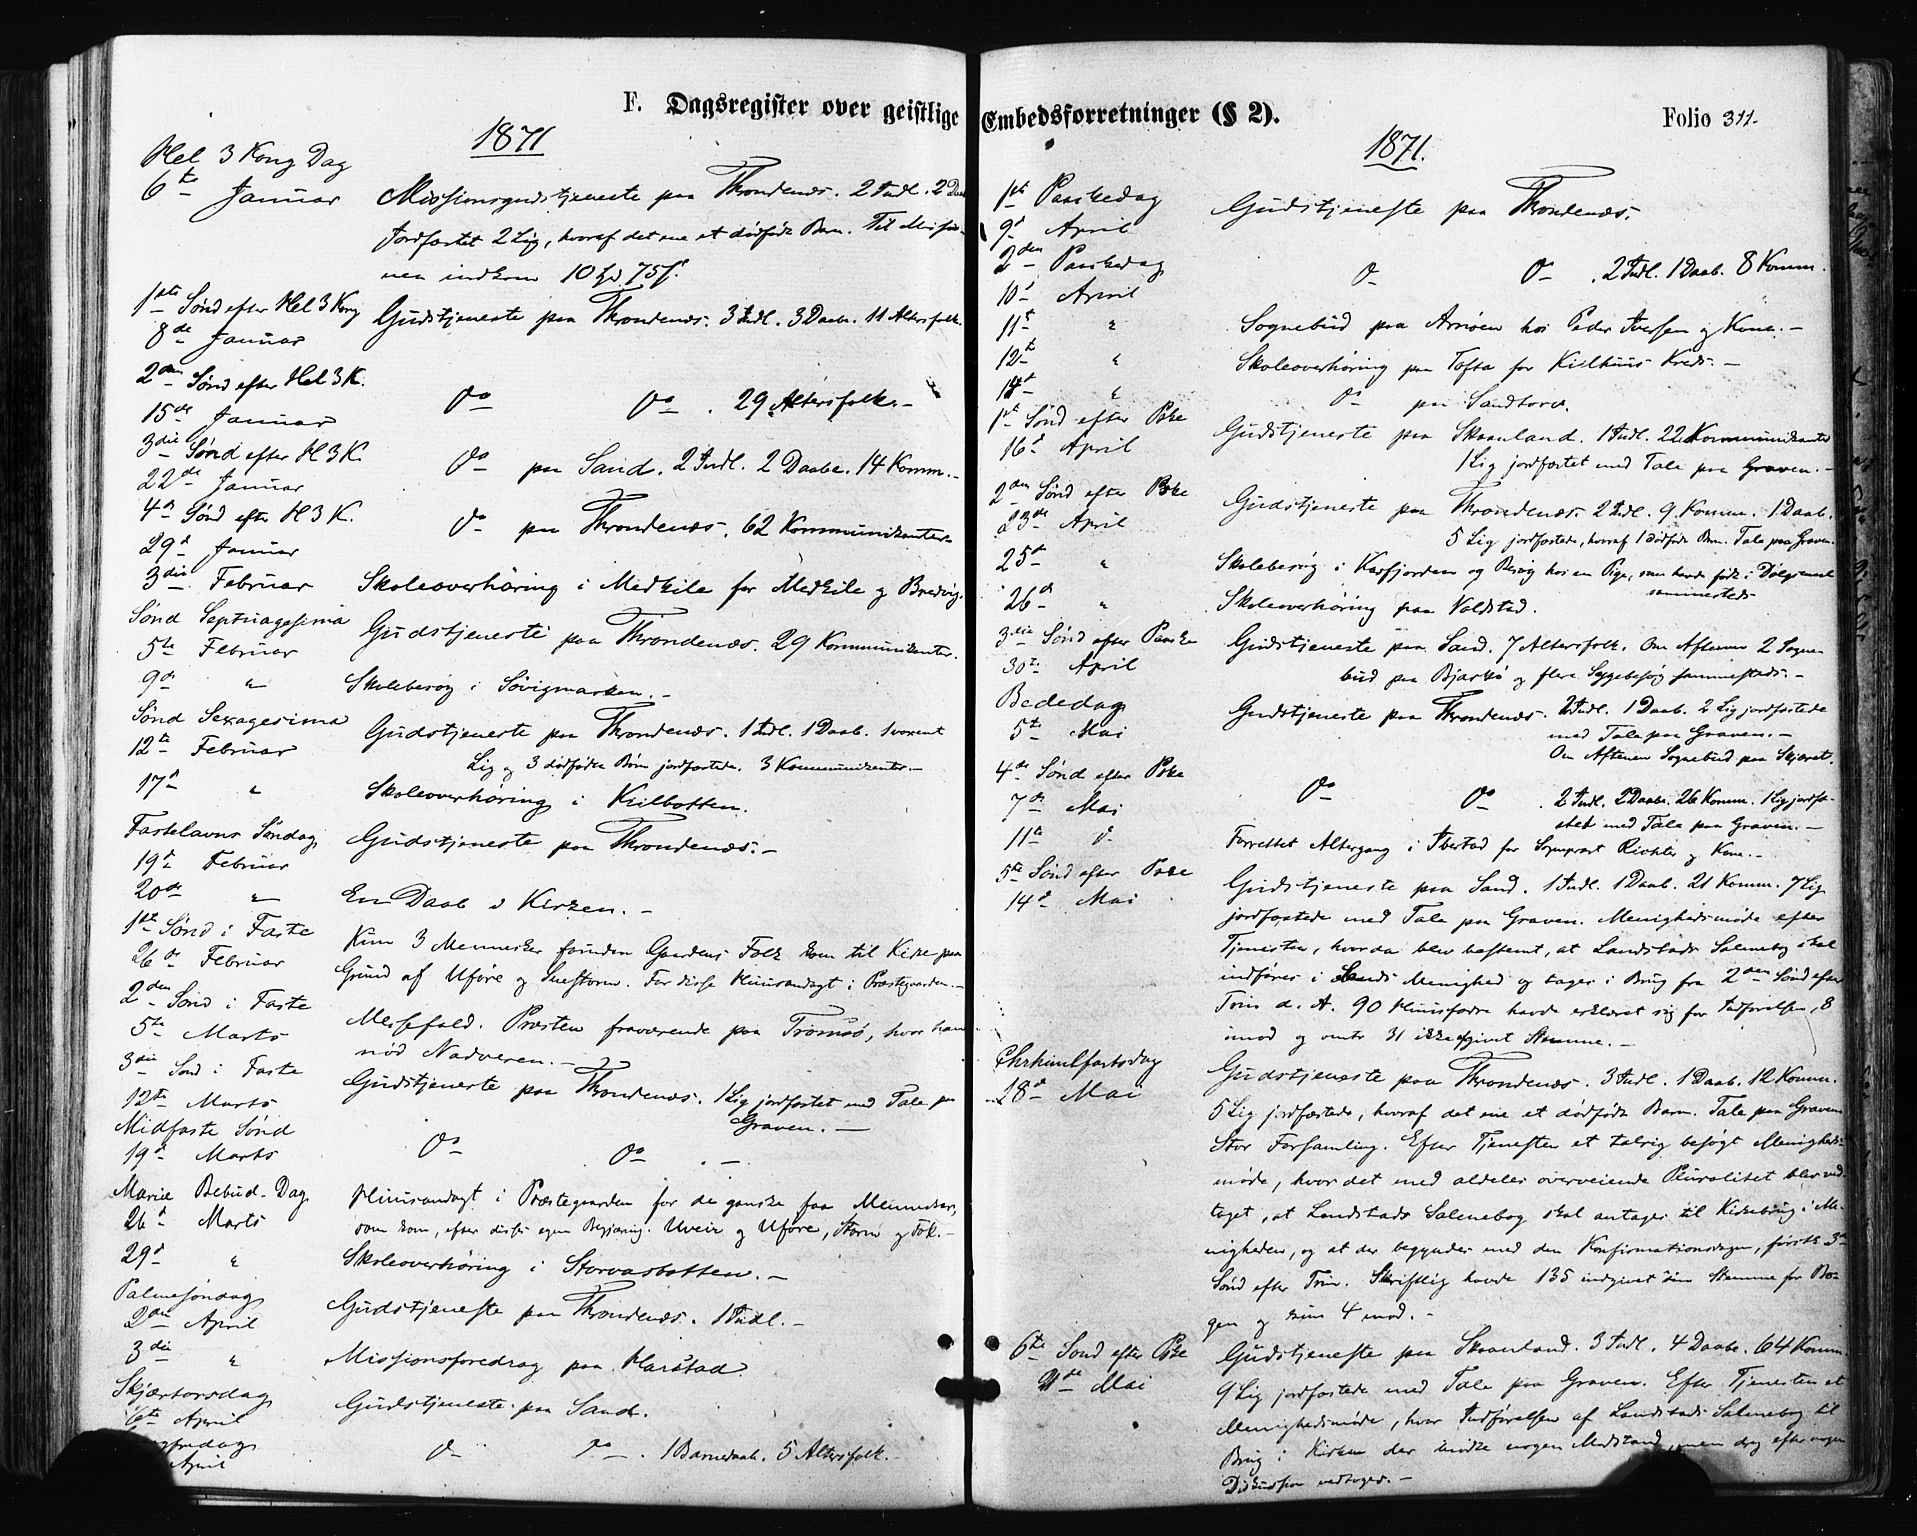 F. Dagsregister over geistlige
1871
Hel 3 Kong Dag
6te Januar Missionsgudstjeneste paa Throndenæs. 2 Indl. 2 Daab
Jordfæstet 2 Lig, hvoraf det ene et dødfødt Barn. Til Missio-
nen indkom
1ste Sønd efter Hel 3 Kong Gudstjeneste paa Throndenæs. 3 Indl. 3 Daab. 11 Altersfolk.
8de Januar
2den Sønd efter Hel 3 K. Do Do. 29 Altersfolk.-
15de Januar
3die Sønd efter H 3 K. Do paa Sand. 2 Indl. 2 Daabe. 14 Komm.-
22de Januar
4de Sønd efter H 3 K. Do paa Throndenæs. 62 Kommunikanter-
29de Januar
3die Februar Skoleoverhøring i Medkile for Medkile og Bredvig.
Sønd Septuagesima Gudstjeneste paa Throndenæs. 29 Kommunikanter.
5te Februar
9de " Skolebesøg i Sørvigmarken.-
Sønd Sexagesima Gudstjeneste paa Throndenæs. 1 Indl. 1 Daab. 1 voxent
12te Februar Lig og 3 dødfødte Børn jordfæstede. 3 Kommunikanter.-
17de " Skoleoverhøring i Kilbotten.
Fastelavns Søndag Gudstjeneste paa Throndenæs.-
19de Februar
20de " En Daab i Kirken.-
1ste Sønd i Faste Kun 3 Mennesker foruden Gaardens Folk kom til Kirke paa
26de Februar Grund af Uføre og Snestorm. For disse Huusandagt i Præstegaarden.-
2den Sønd i Faste Messefald. Præsten fraværende paa Tromsø, hvor han
5te Marts nød Nadveren.-
3die Sønd i Faste Gudstjeneste paa Throndenæs. 1 Lig jordfæstet med Tale paa
12te Marts Graven.-
Midfaste Sønd Do Do.-
19de Marts
Mariæ Bebud. Dag Huusandagt i Præstegaarden for de ganske faa Mennesker,
26de Marts som kom, efter disses egen Begjæring. Uveir og Uføre, Storm og Fok.-
29de " Skoleoverhøring i Storvasbotten.-
Palmesøndag Gudstjeneste paa Throndenæs. 1 Indl.-
2den April
3die " Missionsforedrag paa Harstad.
Skjærtorsdag Gudstjeneste paa Sand.
6te April
Do Do. 1 Barnedaab. 5 Altersfolk.-
April
Embedsforretninger (§ 2).
Folio 311.
1871.
1ste Paaskedag Gudstjeneste paa Throndenæs.
9de April
2den Paaskedag Do Do. 2 Indl. 1 Daab. 8 Komm.
10de April
11te " Sognebud paa Arnøen hos Peder Iversen og Kone.-
12te " Skoleoverhøring paa Tofta for Kilhuus Kreds.-
" Do paa Sandtorv.
1ste Sønd efter Pske Gudstjeneste paa Skaanland. 1 Indl. 22 Kommunikanter
16de April 1 Lig jordfæstet med Tale paa Graven.-
2den Sønd efter Pske Gudstjeneste paa Throndenæs. 2 Indl. 9 Komm. 1 Daab.
23de April 5 Lig jordfæstede, hvoraf 1 dødfødt Barn. Tale paa Graven.
25de " Skolebesøg i Kasfjorden og Besøg hos en Pige, som havde født i Dølgsmaal
sammesteds
26de " Skoleoverhøring paa Voldstad.
3die Sønd efter Paaske Gudstjeneste paa Sand. 7 Altersfolk. Om Aftenen 2 Sogne-
30te April bud paa Bjarkø og flere Sygebesøg sammesteds.-
Bededag Gudstjeneste paa Throndenæs. 2 Indl. 1 Daab. 2 Lig jordfæstede
5te Mai med Tale paa Graven.-
Om Aftenen Sognebud paa Skjæret.
4de Sønd efter Pske Do Do. 2 Indl. 2 Daab. 26 Komm. 1 Lig jordfæ-
7de Mai stet med Tale paa Graven.-
11te Do Forrettet Altergang i Ibestad for Sogneprst Richter og Kone.-
5te Sønd efter Pske Gudstjeneste paa Sand. 1 Indl. 1 Daab. 21 Komm. 7 Lig
14de Mai jordfæstede med Tale paa Graven. Menighedsmøde efter
Tjenesten, hvorda blev bestemt, at Landstads Salmebog skal
indføres i Sands Menighed og tages i Brug fra 2den Sønd efter
Trin d. A. 90 Huusfædre havde erklæret sig for Indførelsen, 8
imod og omtr 31 ikke afgivet Stemme.-
Chrhimlfartsdag Gudstjeneste paa Throndenæs. 3 Indl. 1 Daab. 12 Komm.
18de Mai 5 Lig jordfæstede, hvoraf det ene et dødfødt Barn. Tale paa Graven
Stor Forsamling. Efter Tjenesten et talrig besøgt Menigheds-
møde, hvor det med aldeles overveiende Pluralitet blev ved-
taget, at Landstads Salmebog skal antages til Kirkebrug i Me-
nigheden, og at der begyndes med den Konfirmationsdagen, første 3die
Sønd efter Trin. Skriftlig havde 135 indgivet sin Stemme for Bo-
gen og kun 4 mod.-
6te Sønd efter Pske Gudstjeneste paa Skaanland. 3 Indl. 4 Daabe. 64 Komm.
21de Mai 9 Lig jordfæstede med Tale paa Graven. Efter Tjenesten et
Menighedsmøde, hvor Indførelsen af Landstads Salmebog til
Brug i Kirken der mødte nogen Modstand, men dog efter nogen
Diskussion vedtoges.-